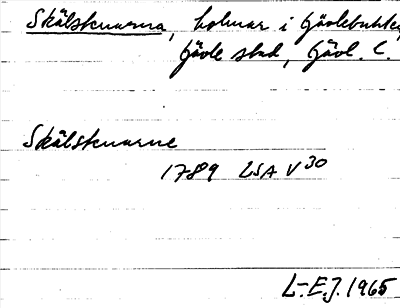 Skälstenarna, holmar i Gävlebukten,
Gävle stad, Gävl. l.
Skälstenarne
1789 LSA V 30
L-E.J. 1965